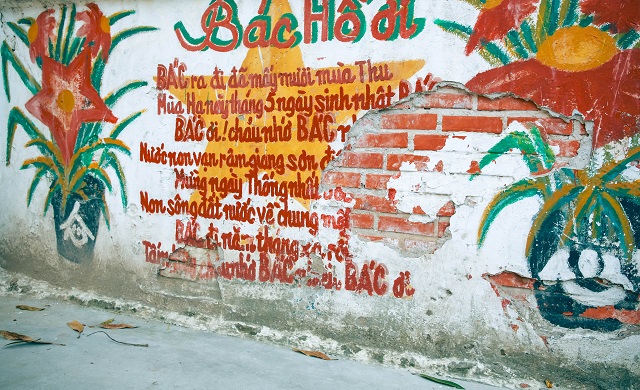 Bác Hồ ơi
BÁC ra đi đã mấy mươi mùa Thu
Mùa Hạ này tháng 5 ngày sinh nhật BÁC
BÁC ơi! cháu nhớ BÁC
Nước non vạn râm giang sơn
Mừng ngày Thống nhất
Non sông đất nước về chung một
BÁC đi năm tháng xa rồi
nhớ BÁC BÁC ơi